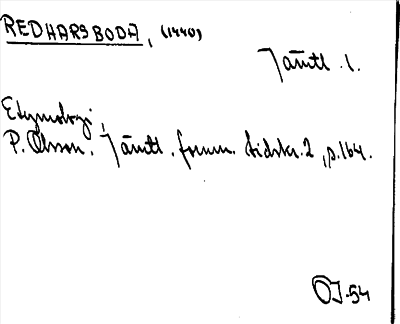 REDHARSBODA, (1440)
Jämtl. l.
Etymologi,
P. Olsson. Jämtl. fornm. tidskr. 2, s. 164.
OJ-54